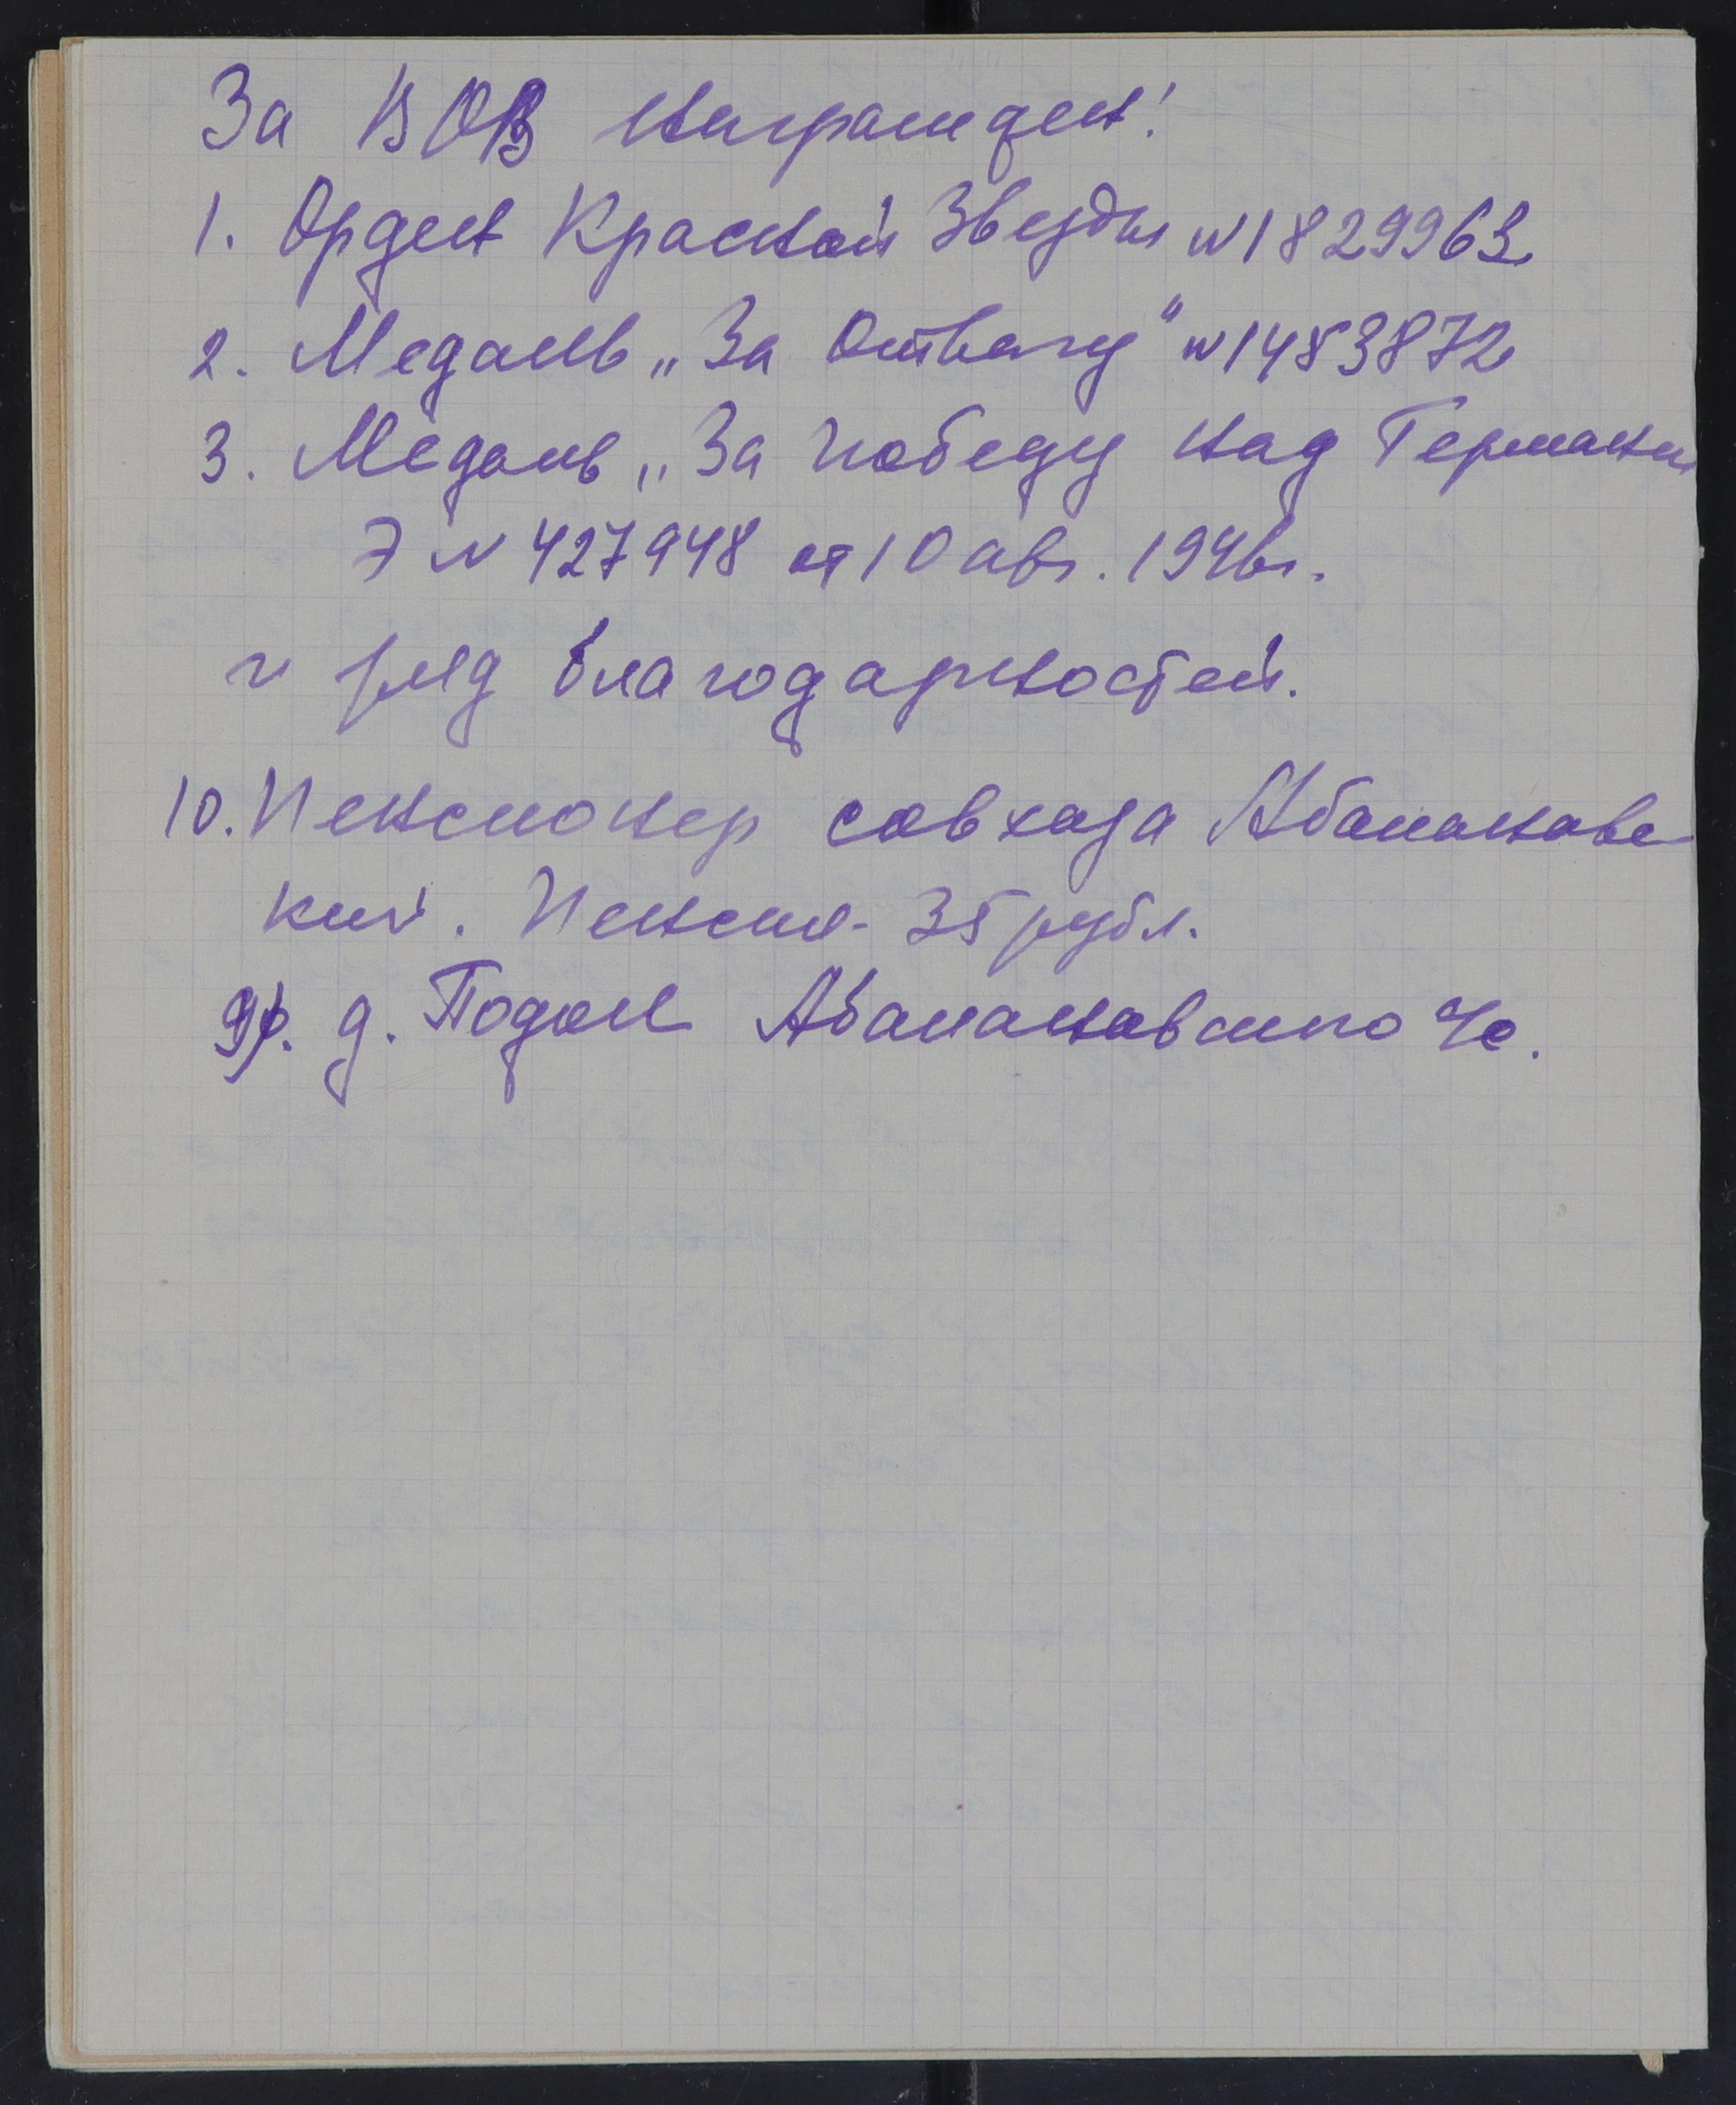 За ВОВ награжден:
1. Орден Красной Звезды №1829963
2. Медаль „За Отвагу" №1453872
3. Медаль „За победу над Германи
Э № 427948 от 10 авг. 1946г.
и ряд благодарностей.
10. Пенсионер совхоза Абаканавс
кий. Пенсия - 35 рубл.
9. д. Подол